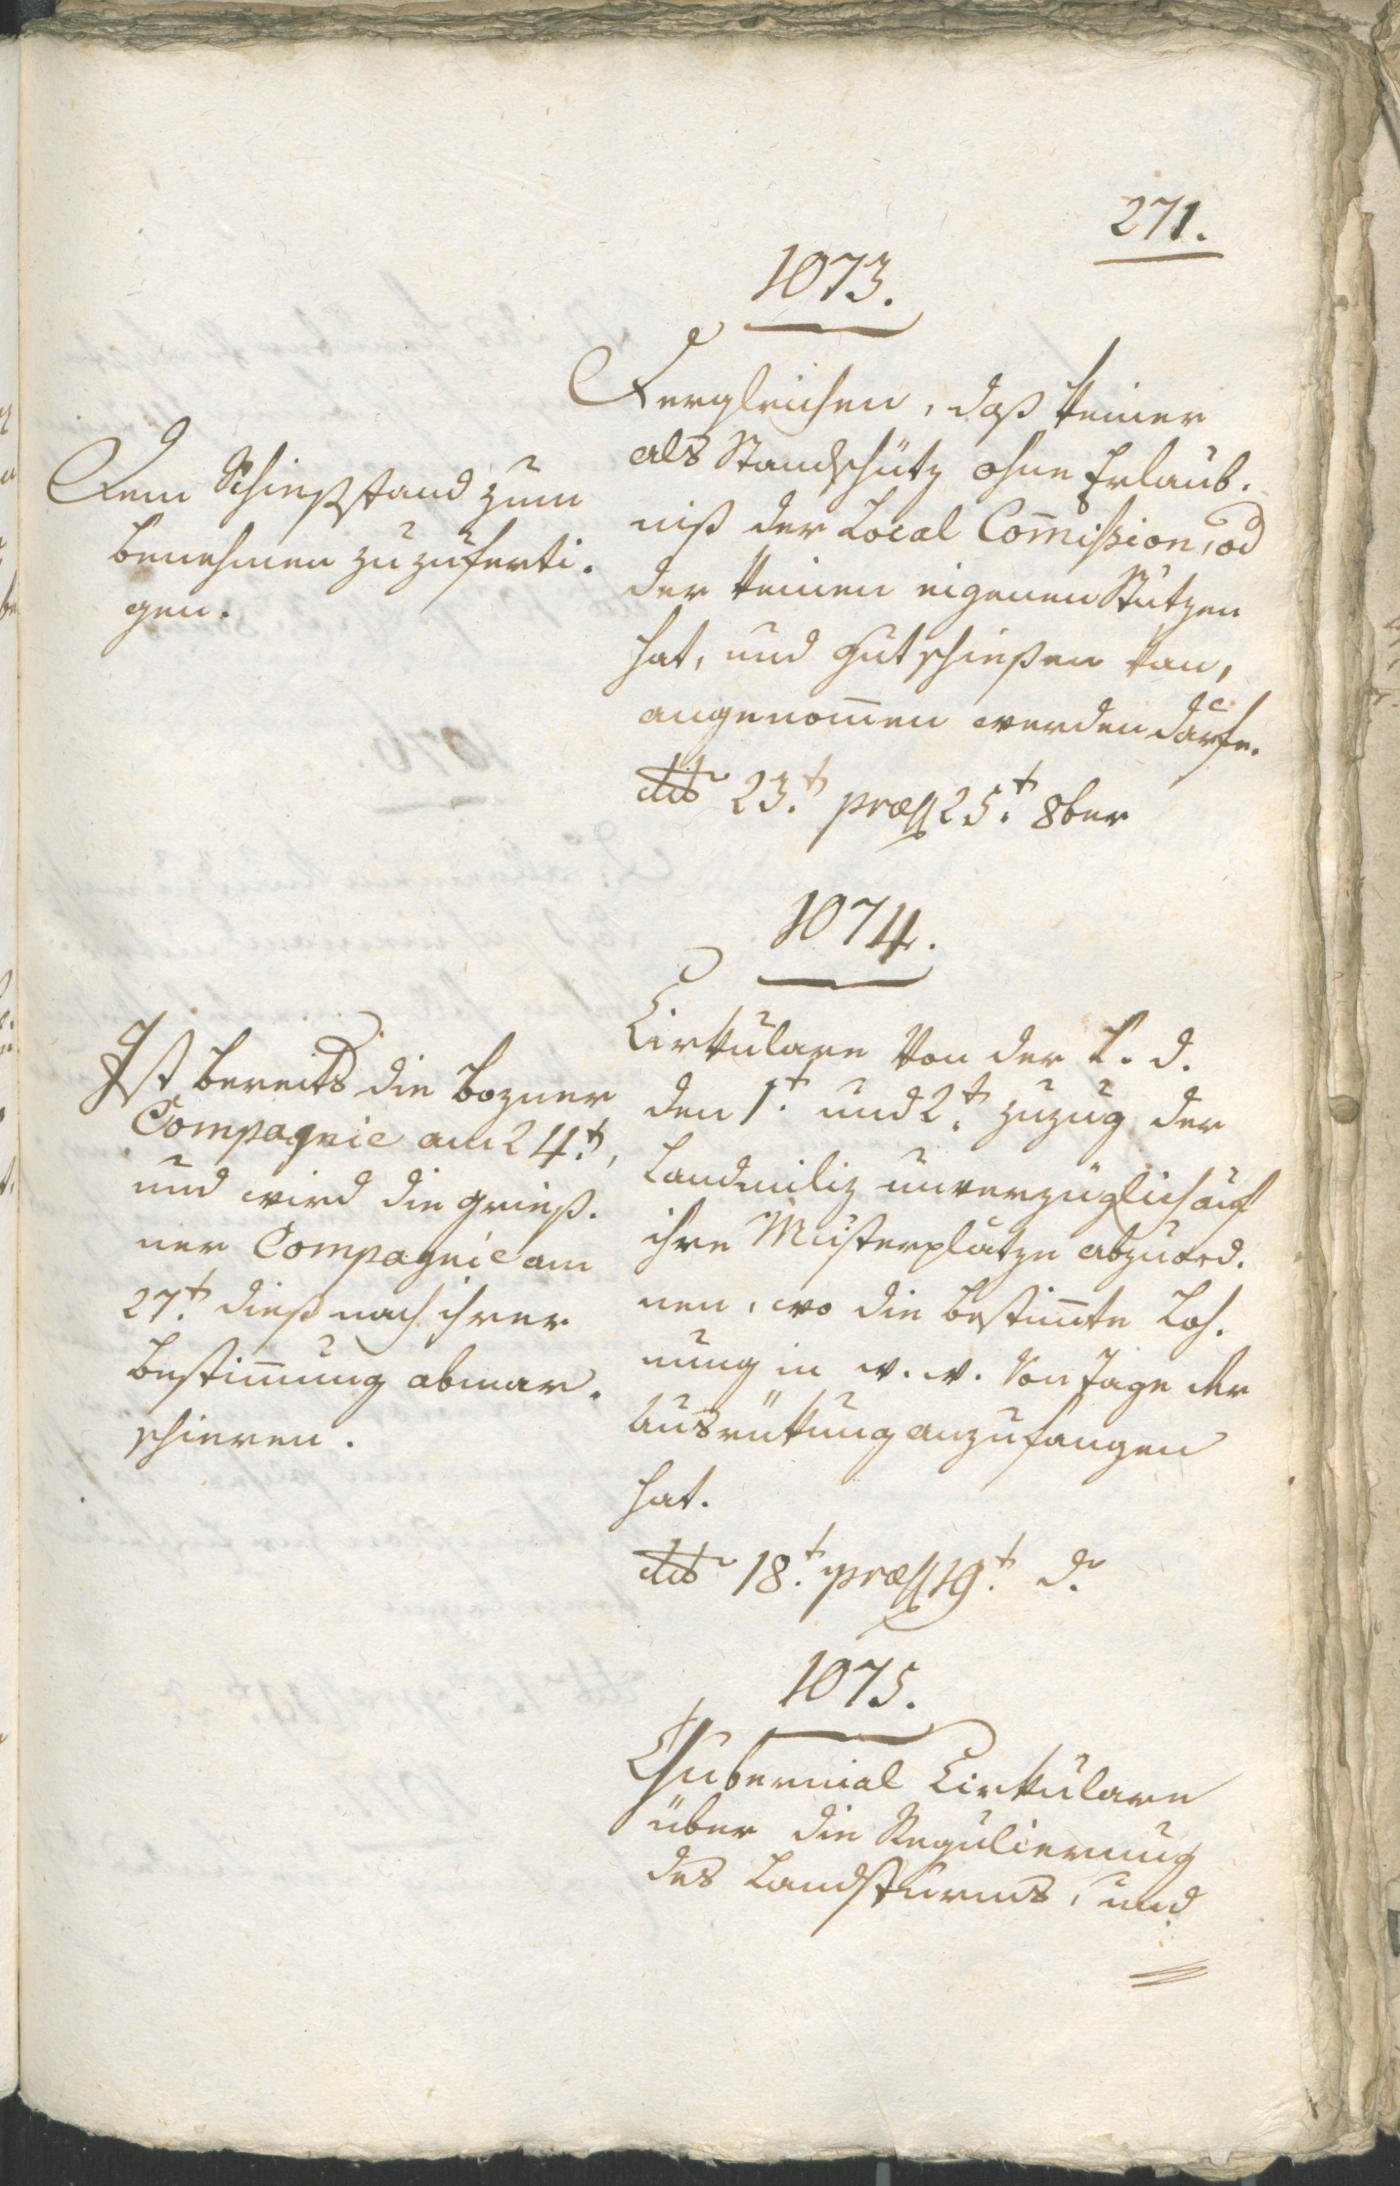 271.
1073.
Dergleichen, daß keiner
als Standschütz ohne Erlaub.
niß der Local Com̄ission, od
der keinen eigenen Stutzen
hat, und gut schießen kan,
angenom̄en werden därfe.
ddto 23.t præs 25.t 8ber
Dem Schießstand zum
benehmen zuzuferti.
gen.
1074.
Cirkulare von der L. d.
den 1.t und 2.t Zuzug der
Landmiliz unverzüglich auf
ihre Musterplätze abzuord.
nen, wo die bestim̄te Loh.
nung in w. w. von Tage der
Ausrükung anzufangen
hat.
ddto 18.t præs 19.t do
Ist bereits die Bozner
Compagnie am 24.t,
und wird die grieß.
ner Compagnie am
27.t dieß nach ihrer
Bestim̄ung abmar.
schieren.
1075.
Gubernial Cirkulare
über die Regulierung
des Landsturms, und